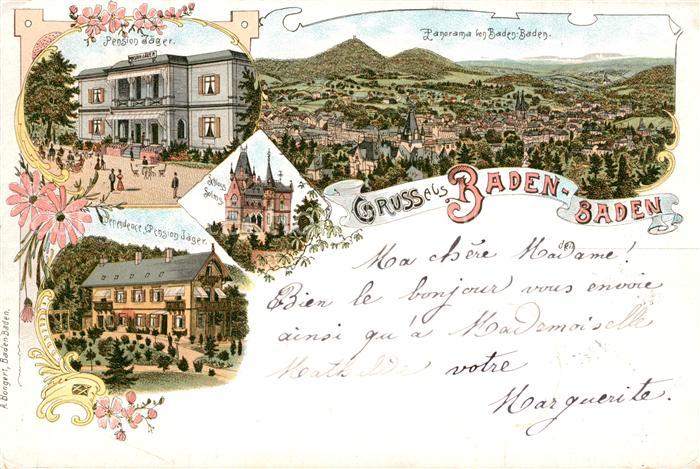 Pension Jäger.
PENSION JÄGER
Panorama von Baden-Baden.
Schloss
Solms
GRUSS aus BADEN-
BADEN
den
Dependence Pension Jäger.
Ma chère Madame!
Bien le bonjour vous envoie
ainsi qu'à Mademoiselle
Mathilde votre
Marguerite.
A. Bongert, Baden-Baden.